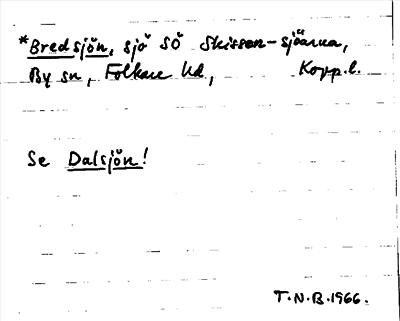 *Bredsjön, sjö SÖ Skissen-sjöarna,
By sn, Folkare hd, Kopp.l.
Se Dalsjön!
T.N.B.1966.